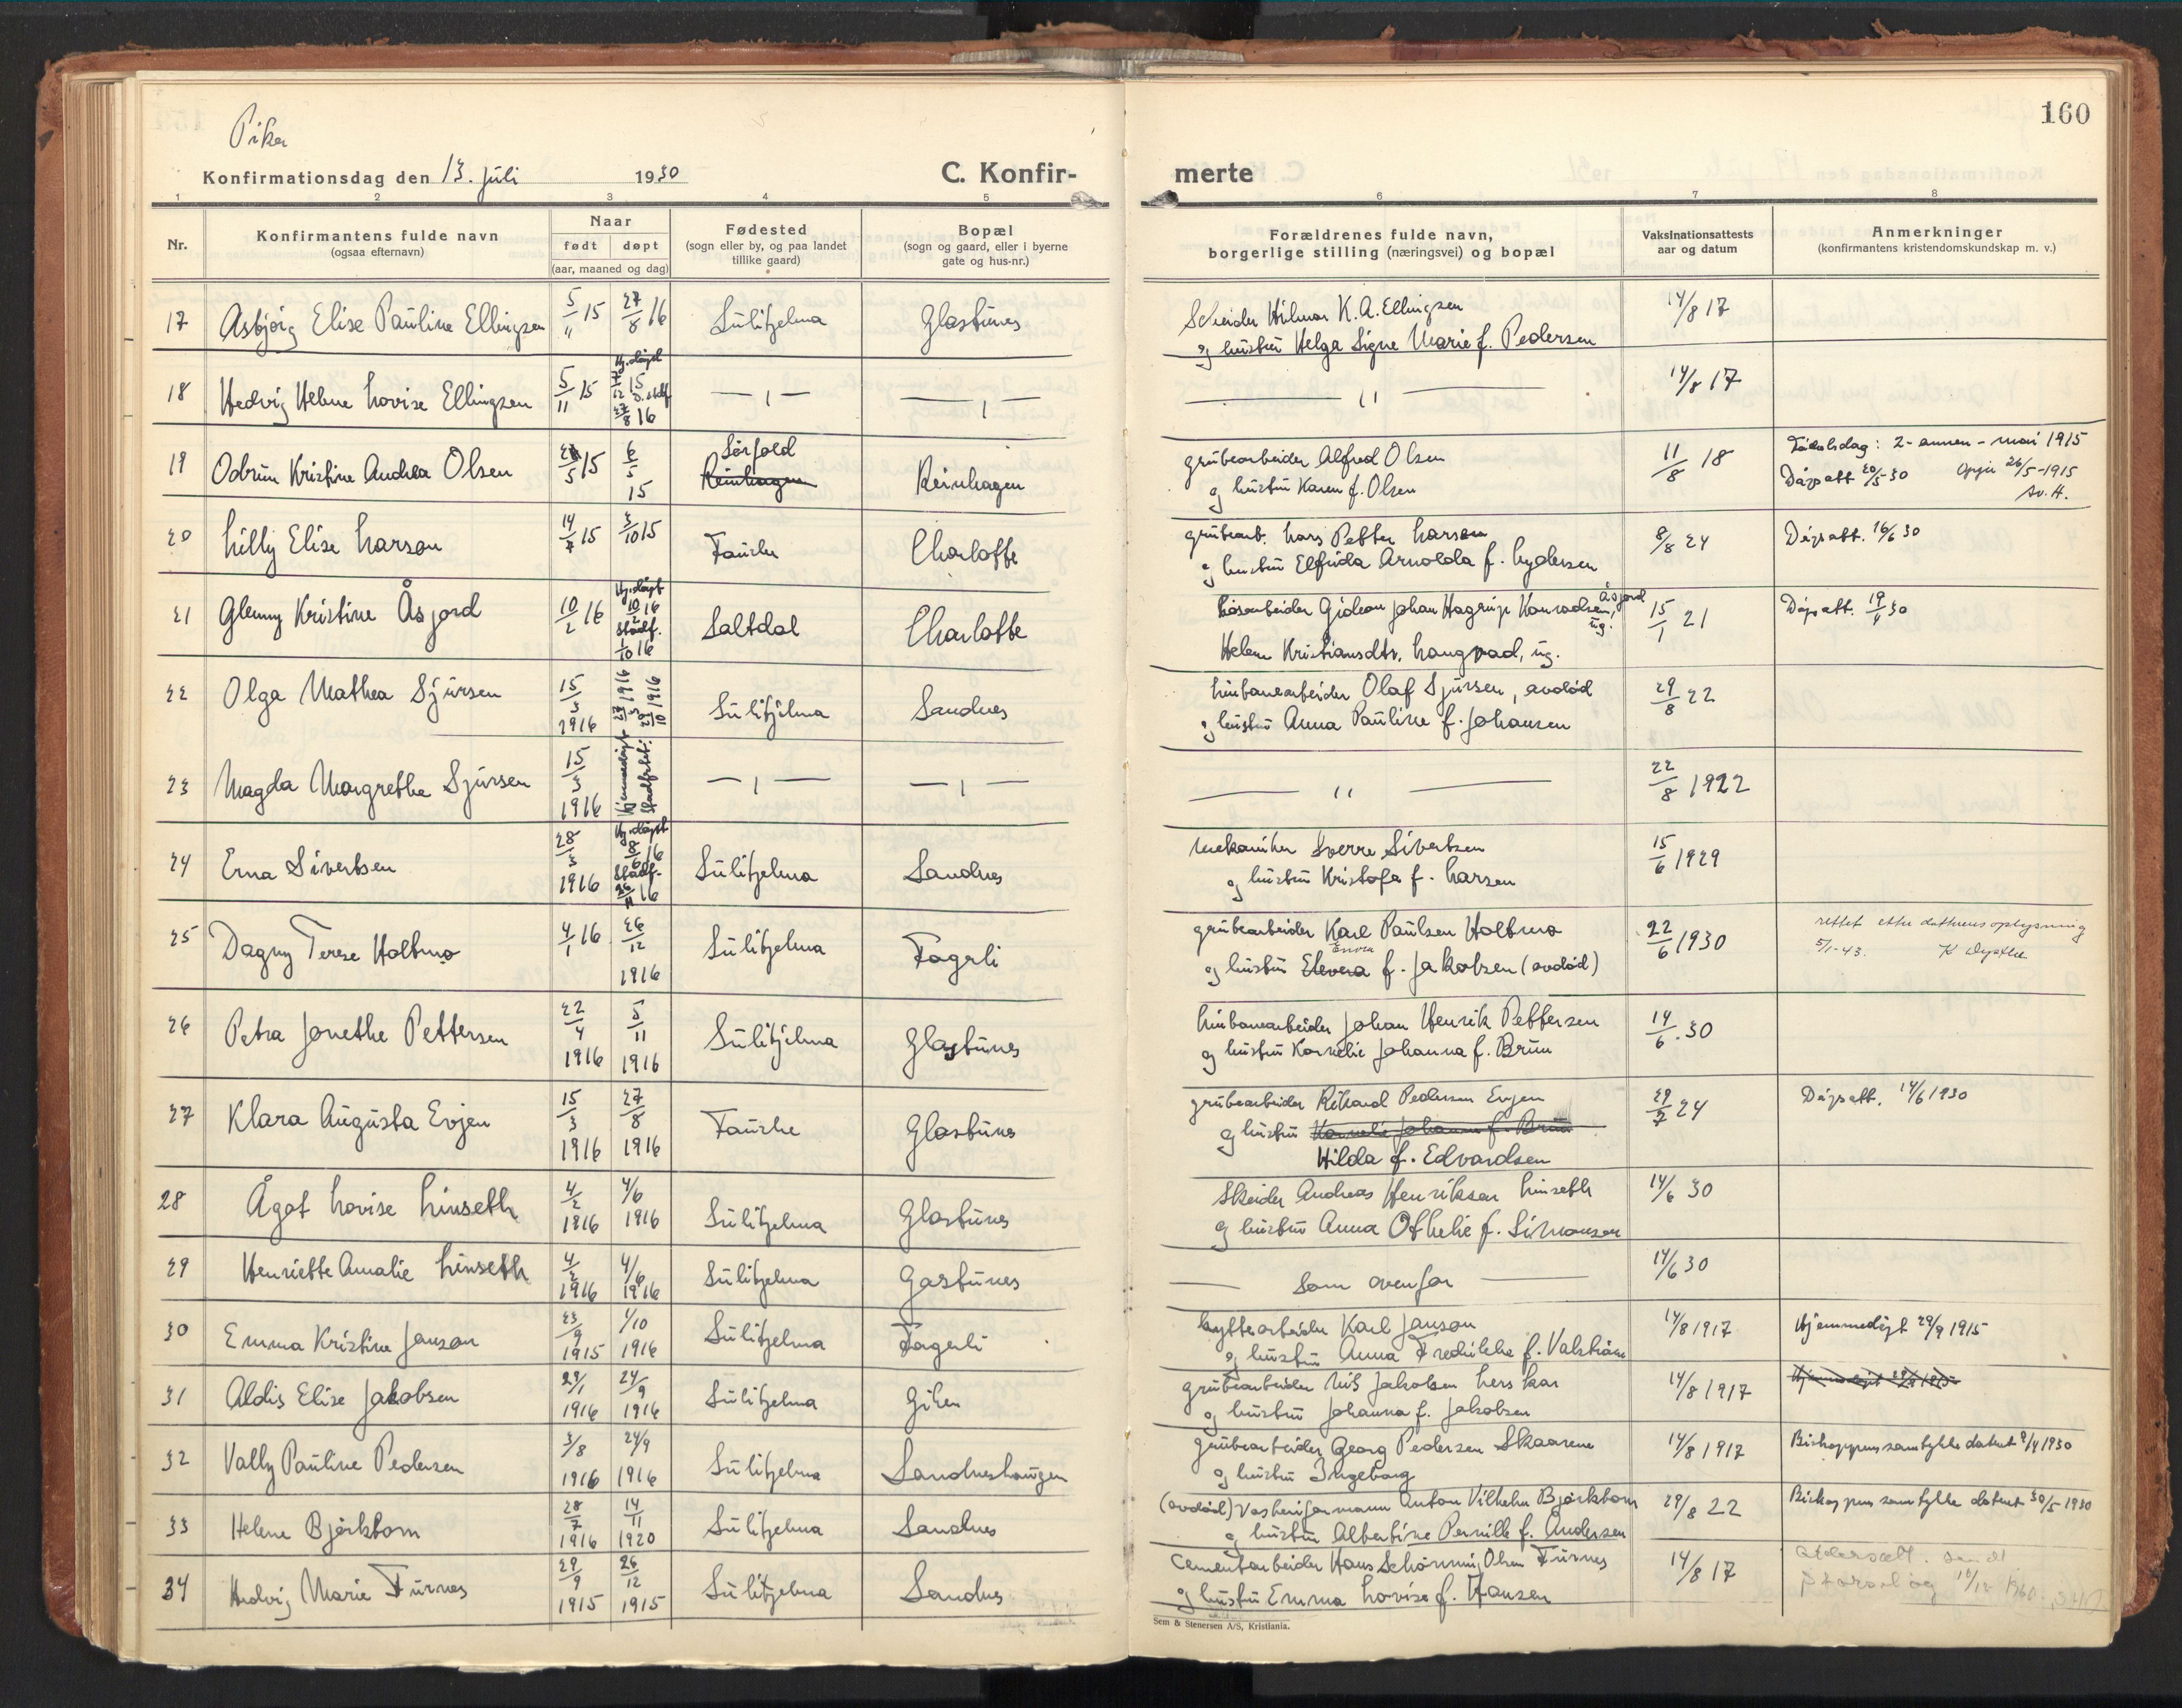 160
Piker
Konfirmationsdag den 13. juli 1930
C. Konfir-
merte
1 2 3 4 5
6 7 8
Nr.
Konfirmantens fulde navn
(ogsaa efternavn)
Naar
født døpt
(aar, maaned og dag)
Fødested
(sogn eller by, og paa landet
tillike gaard)
Bopæl
(sogn og gaard, eller i byerne
gate og hus-nr.)
Forældrenes fulde navn,
borgerlige stilling (næringsvei) og bopæl
Vaksinationsattests
aar og datum
Anmerkninger
(konfirmantens kristendomskundskap m. v.)
17 Asbjørg Elise Pauline Ellingsen 5/11 15 27/8 16 Sulitjelma Glastunes
Skeider Hilmar K. A. Ellingsen 14/8 17
og hustru Helga Signe Marie f. Pedersen
18 Hedvig Helene Lovise Ellingsen 5/11 15 Hj.døpt 17/12 15 Stadf. 27/8 16 — " — — " —
— " — 14/8 17
19 Odrun Kristine Andrea Olsen 5 15 6/5 15 Sørfold Reinhagen Reinhagen
grubearbeider Alfred Olsen 11/8 18 Fødselsdag: 2-annen-mai 1915
og hustru Karen f. Olsen Dåpsatt 20/5-30 Opgir 26/5-1915
20 Lilly Elise Larsen 14/7 15 3/10 15 Fauske Charlotte
grubearb. Lars Petter Larsen 8/8 24 Dåpsatt. 16/6 30
og hustru Elfrida Arnolda f. Lydersen
21 Glenny Kristine Åsjord 10/2 16 Hj.døpt 10/2 16 Stadf. 1/10 16 Saltdal Charlotte
Løsarbeider Gideon Johan Hagrup Konradsen Åsjord, ug. 15/1 21 Dåpsatt. 19/4 30
Helene Kristiansdtr. Langvad, ug.
22 Olga Mathea Sjursen 15/3 1916 Sulitjelma Sandnes
Linbanearbeider Olaf Sjursen, avdød 29/8 22
og hustru Anna Pauline f. Johansen
23 Magda Margrethe Sjursen 15/3 1916 Hjemmedøpt Stadfestet — " — — " —
— " — 22/8 1922
24 Erna Sivertsen 28/3 1916 Hj.døpt 8/6 16 Stadf. 26/11 16 Sulitjelma Sandnes
Mekaniker Sverre Sivertsen 15/6 1929
og hustru Kristofa f. Larsen
25 Dagny Terese Holtmo 4/1 16 26/12 1916 Sulitjelma Fagerli
grubearbeider Karl Paulsen Holtmo 22/6 1930 rettet etter datterens oplysning
og hustru Elevera f. Jakobsen (avdød) 5/1-43.
26 Petra Jonethe Pettersen 22/4 1916 5/11 1916 Sulitjelma Glastunes
Linbanearbeider Johan Henrik Pettersen 14/6 30
og hustru Kornelie Johanna f. Brun
27 Klara Augusta Evjen 15/3 1916 27/8 1916 Fauske Glastunes
grubearbeider Rikard Pedersen Evjen 29/7 24 Dåpsatt. 14/6 1930
og hustru Kornelie Johanna f. Brun
Hilda f. Edvardsen
28 Ågot Lovise Linseth 4/2 1916 4/6 1916 Sulitjelma Glastunes
Skeider Andreas Henriksen Linseth 14/6 30
og hustru Anna Othelie f. Simonsen
29 Henriette Amalie Linseth 4/2 1916 4/6 1916 Sulitjelma Gastunes
— Som ovenfor — 14/6 30
30 Emma Kristine Janson 23/9 1915 1/10 1916 Sulitjelma Fagerli
Hyttearbeider Karl Janson 14/8 1917 Hjemmedøpt 29/9 1915
og hustru Anna Fredrikke f.
31 Aldis Elise Jakobsen 29/1 1916 24/9 1916 Sulitjelma Giken
grubearbeider Nils Jakobsen 14/8 1917 Hjemmedøpt 29/9 1915
og hustru Johanna f. Jakobsen
32 Vally Pauline Pedersen 3/8 1916 24/9 1916 Sulitjelma Sandneshaugen
grubearbeider Georg Pedersen Skaarene 14/8 1917 Bishoppens samtykke datert 9/4 1930
og hustru Ingeborg
33 Helene Bjørkbom 28/7 1916 14/11 1920 Sulitjelma Sandnes
(avdød) Vaskeriformann Anton Vilhelm Bjørkbom 29/8 22 Biskoppens samtykke datert 30/5 1930
og hustru Albertine Pernille f. Andersen
34 Hedvig Marie Furnes 29/9 1915 26/12 1915 Sulitjelma Sandnes
Cementarbeider Hans Schønning Olsen Furnes 14/8 17
og hustru Emma Lovise f. Hansen
Sem & Stenersen A/S, Kristiania.